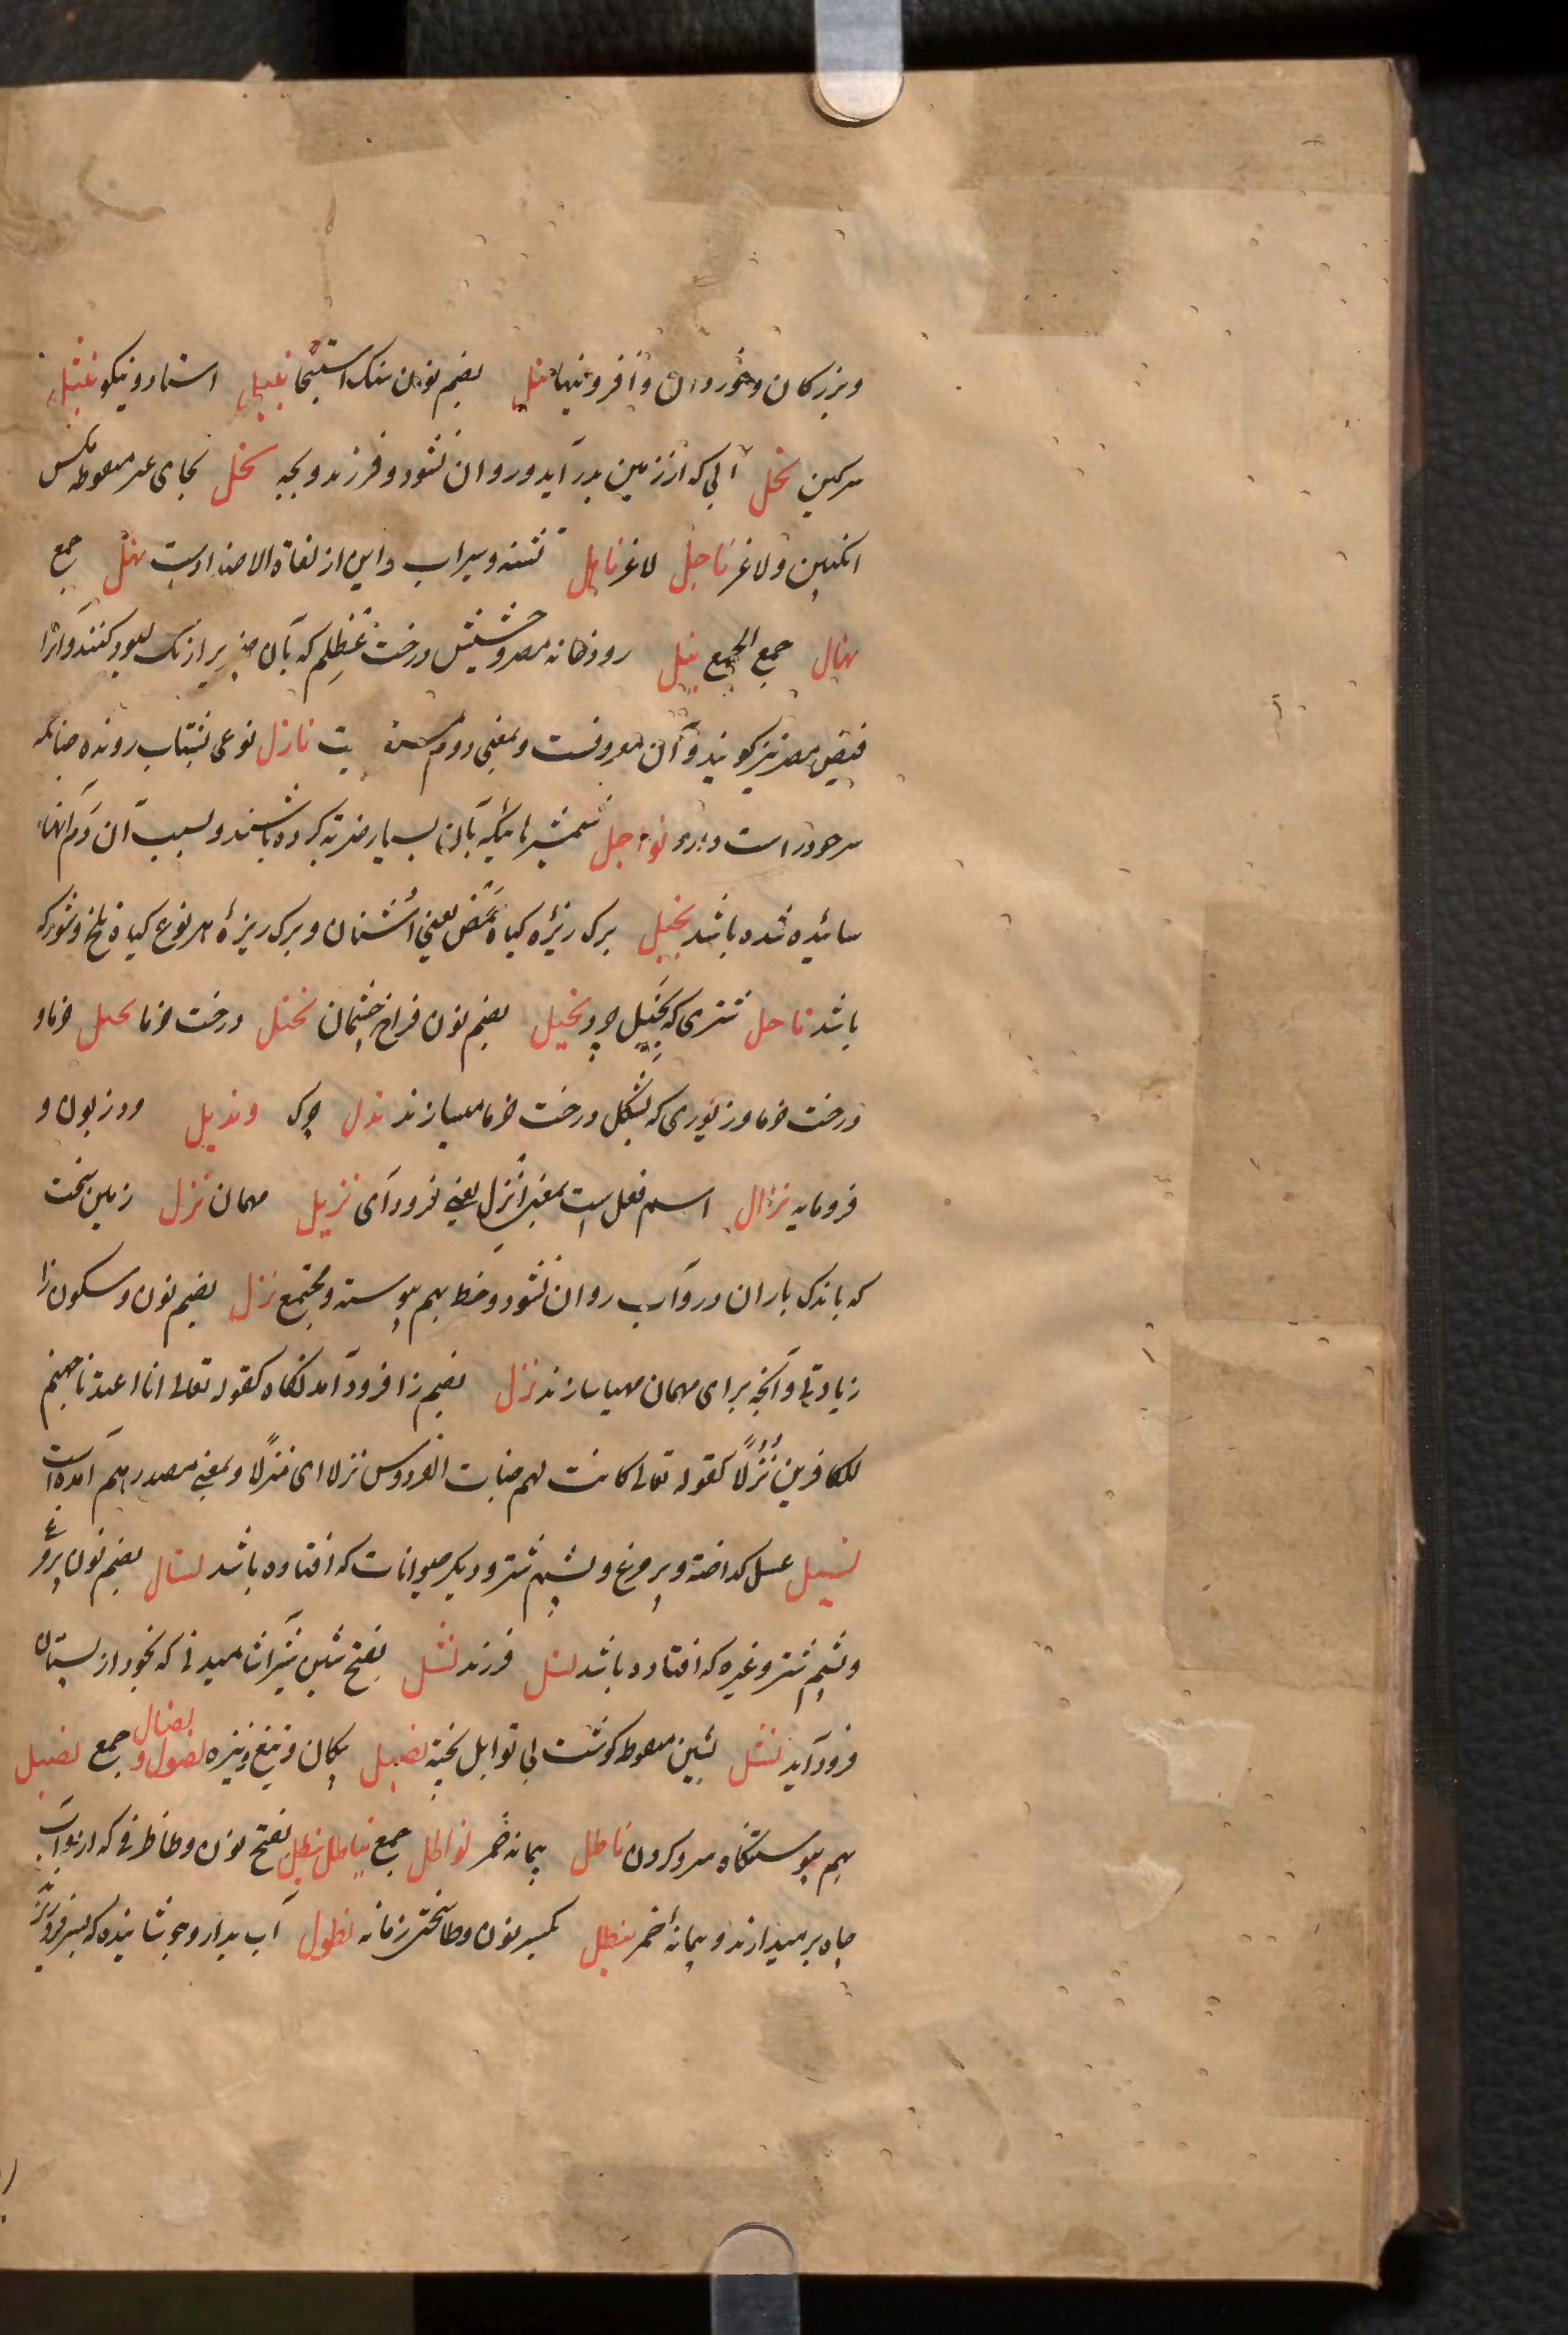 وبزرکان وخوردان وافزونیها نبل بضم نون سنک استنجا نبیل استاد ونیکو نثیل
سرکین نجل آبی که از زمین بدر آید وروان نشود وفرزند وبچه نحل بحای غیر معوط مکس
انکبین ولاغر ناحل لاغر ناهل تشنه وسیراب واین از لغاة الاضدادست نهل جمع
نهال جمع الجمع نیل رودخانه مصر وحشیش درخت عظلم که بآن کبود کنند وآنرا
فیض مصر نیز کویند وآن معروفست وبمعنی دوم نازل نوعی بشتاب رونده چنانکه
سر خود راست دارد نواحل شمشیرهائیکه بآن بسیار ضربه کرده باشند وبسبب آن دم آنها
سائیده شده باشد نجیل برک ریزهٔ کیاه حمض یعنی اشنان وبرک ریزهٔ هر نوع کیاه تلخ وشور که
باشد ناجل شتری که نجیل چرد نجل بضم نون فراخ چشمان نخل درخت خرما نخیل خرما و
درخت خرما وزیوری که بشکل درخت خرما میسازند ندل چرک ونذیل ودر بون و
فرومایه نزال اسم فعل است بمعنی انزل یعنی فرود آی نزیل مهمان نزل زمین سخت
که باندک باران در وآب روان نشود وخط بهم پیوسته ومجتمع نزل بضم نون وسکون زا
زیادتی وآنچه برای مهمان مهیا سازند نزل بضم زا فرود آمدنکاه کقوله تعالی انا اعتدنا جهنم
للکافرین نزلا کقوله تعالی کانت لهم جنات الفردوس نزلا ای منزلا وبمعنی مصدر هم آمده است
نسیل عسل کداخته وپر مرغ وپشم شتر ودیکر حیوانات که افتاده باشد نسال بضم نون پر مرغ
وپشم شتر وغیره که افتاده باشد نسل فرزند نسل بفتح سین شیر انسان میدانی که بخود از پستان
فرود آید نشل بشین معوط کوشت بی توابل پخته نصل پیکان وتیغ ونیزه نصول و نصال جمع نصیل
بهم پیوستکاه سر وکردن ناطل پیمانه خمر نواطل جمع نیاطل نیطل بفتح نون وطا ظرفی که از بوآب
چاه بر میدارند وپیمانهٔ خمر نئطل بکسر نون وطا سختی زمانه نطول آب بدارو جوشانیده که بسر فرو ریزند